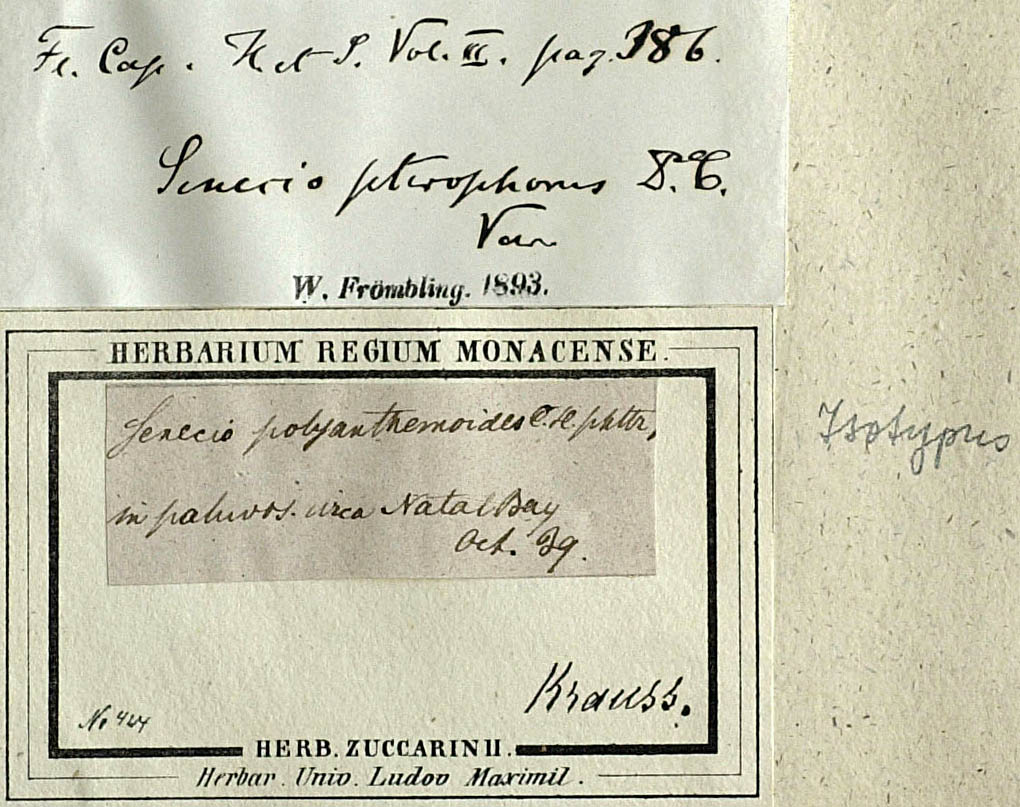 Fl. Cap. H et S. Vol. III. pag. 386.
Senecio pterophorus D.C.
Var
W. Frömbling. 1893.
HERBARIUM REGIUM MONACENSE.
Senecio polyanthemoides C. H. Schltz,
in paludos. circa Natal Bay
Oct. 39.
Krauss.
No 424
HERB. ZUCCARINII.
Herbar. Univ. Ludov Maximil.
Isotypus